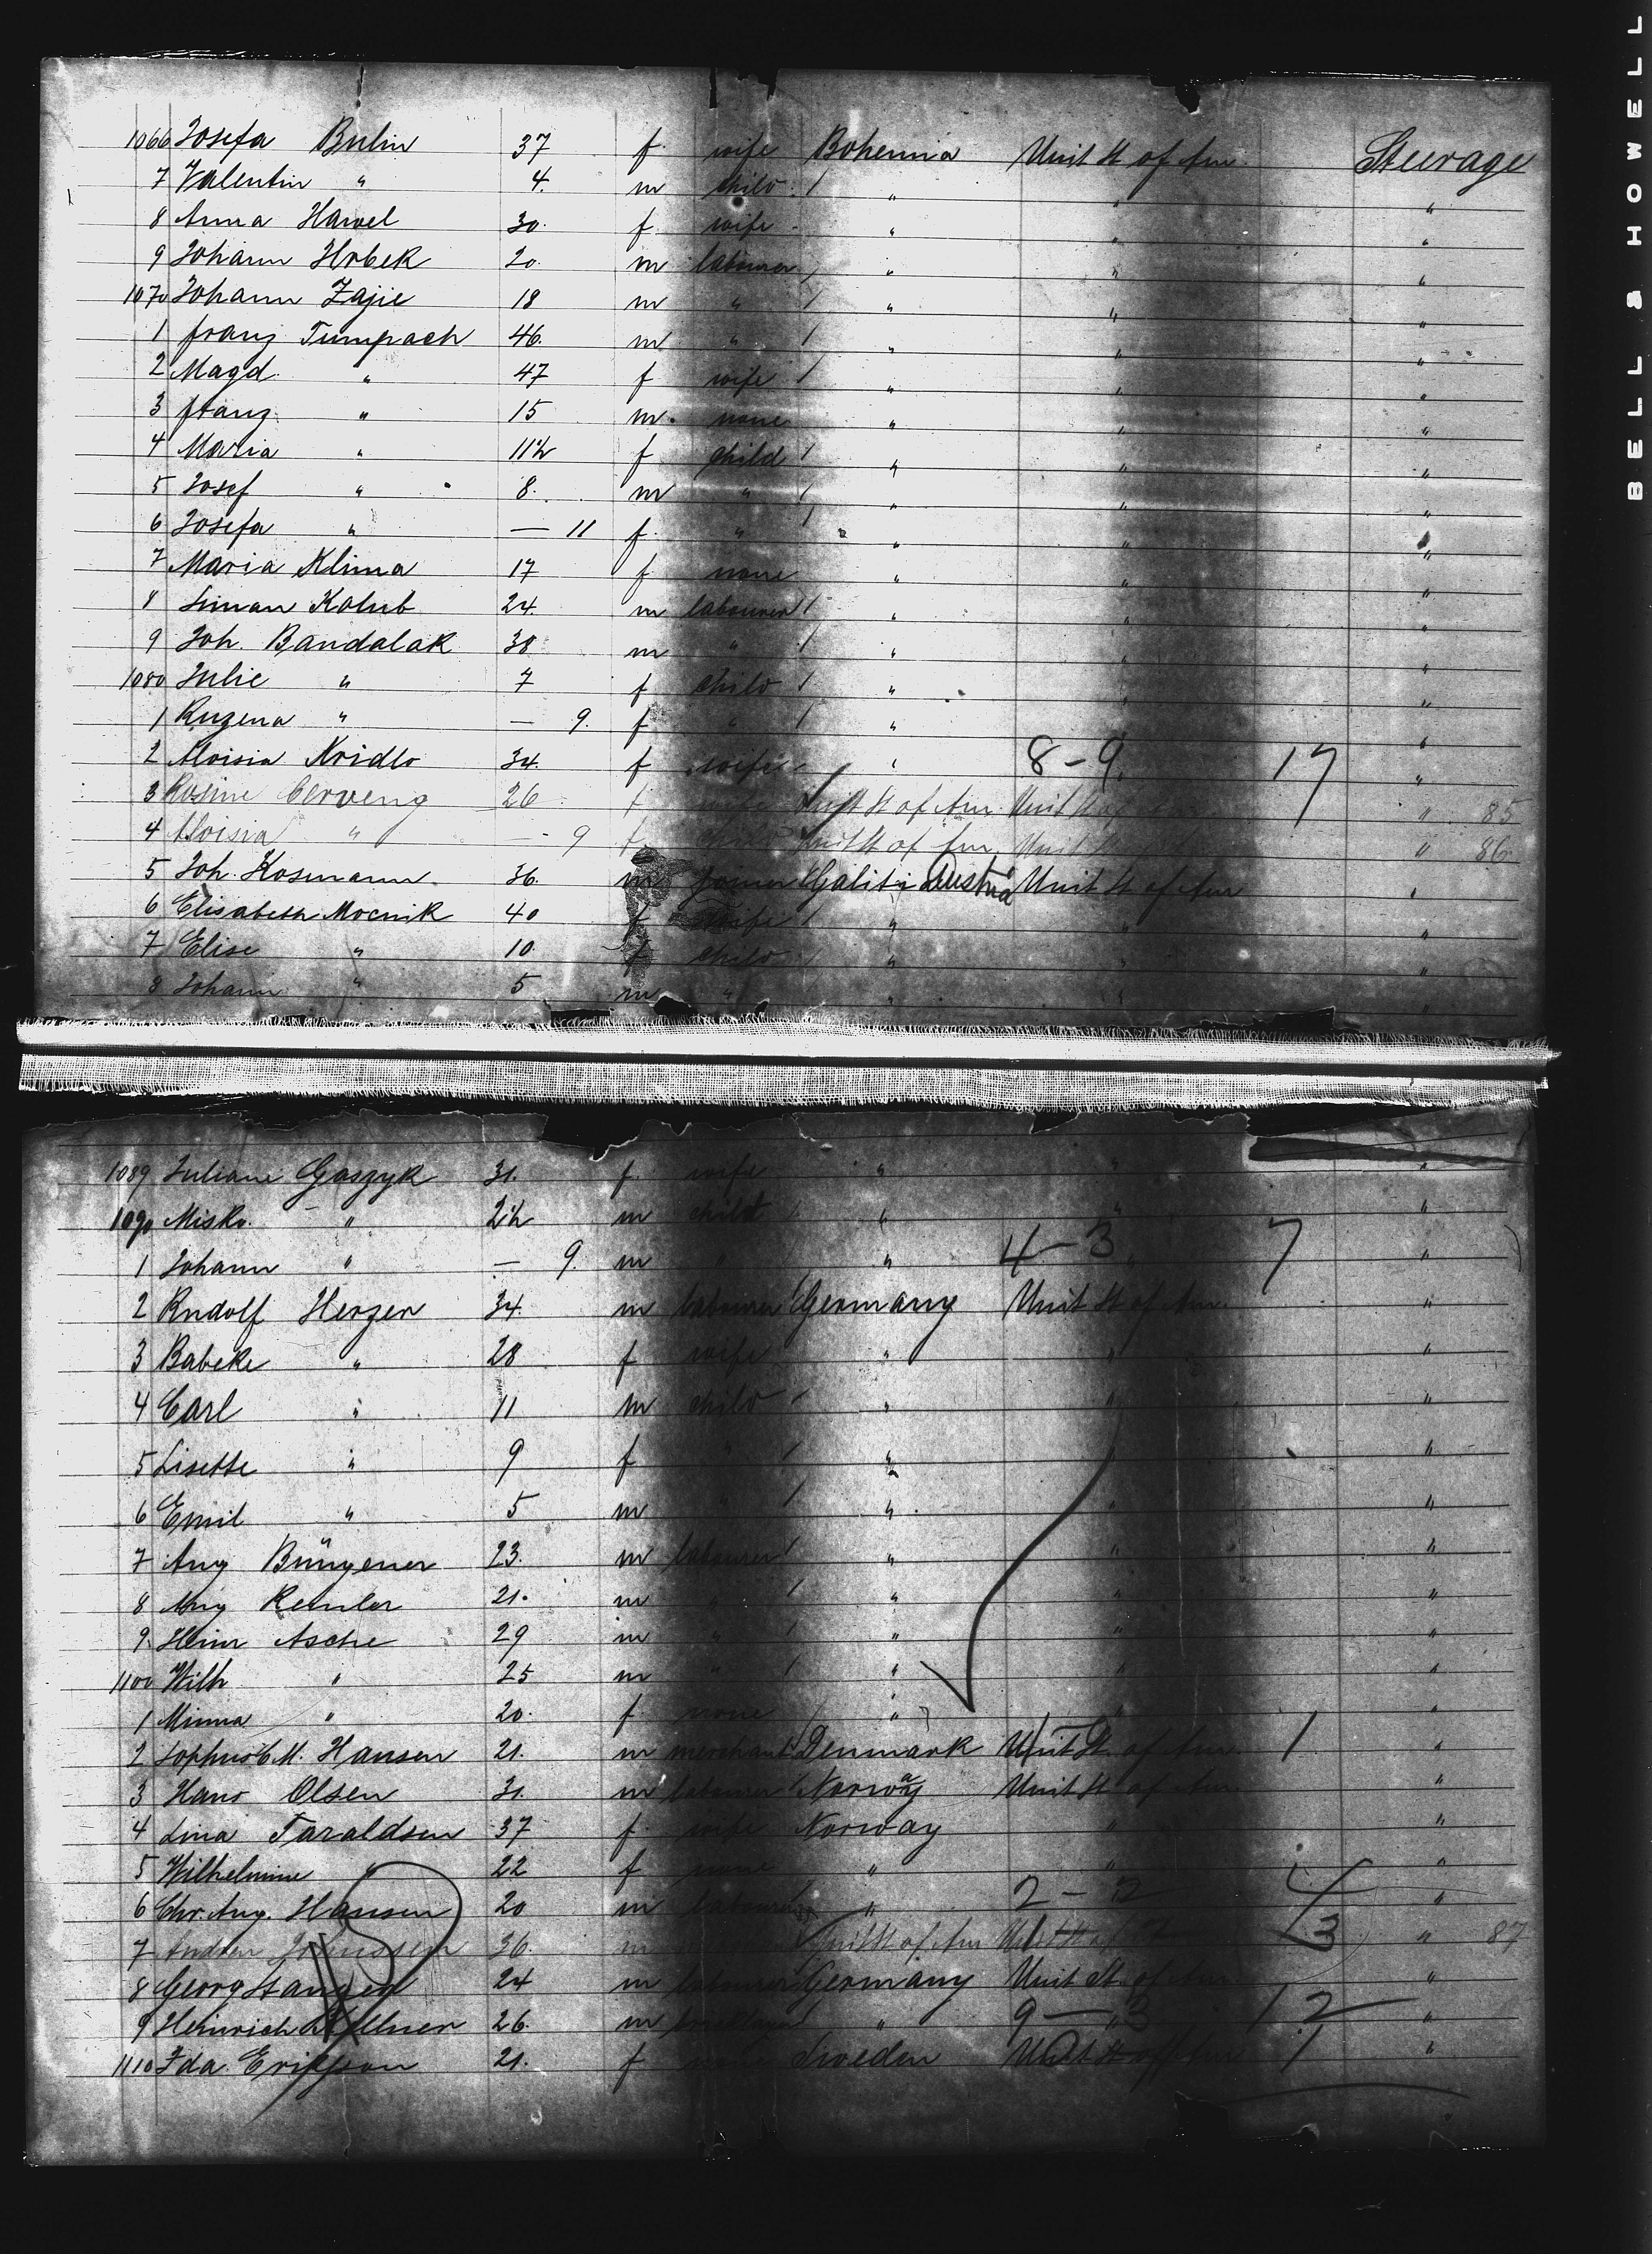 1066 Josefa Bulin 37 f. wife Bohemia Unit St of Am. Steerage
7 Valentin " 4. m child / " " "
8 Anna Hawel 30. f. wife " " "
9 Johann Hrbek 20. m labourer / " " "
1070 Johann Zajic 18 m " / " " "
1 Franz Tumpach 46. m " / " " "
2 Magd. " 47 f wife / " " "
3 Franz " 15 m. none " " "
4 Maria " 11½ f child / " " "
5 Josef " 8. m " / " " "
6 Josefa " — 11 f. " / " " "
7 Maria Klima 17 f none " " "
8 Siman Kolub 24. m labourer / " " "
9 Joh. Bandalak 38 m " / " " "
1080 Julie " 7 f child / " " "
1 Ruzena " — 9. f " / " " "
2 Aloisia Kridlo 34. f wife " 8-9. 17 "
3 Rosine Cerveny 26 f wife Unit St of Am. Unit St of Am " 85
4 Aloisia " — 9 f. child Unit St of Am. Unit St " 86.
5 Joh. Kosmann 36. m Galiti Austria Unit St of Am "
6 Elisabeth Mocnik 40 f wife / " " "
7 Elise " 10. f child / " " "
8 Johann " 5 m " " "
1089 Juliane Gaszyk 31. f. wife " " "
1090 Misko. " 2½ m child " " "
1 Johann " — 9. m " / " 4-3 7 "
2 Rudolf Herzer 34. m labourer / Germany Unit St of Am "
3 Babeke " 28 f wife " " "
4 Carl " 11 m child / " " "
5 Lisette " 9 f " / " " "
6 Emil " 5 m " / " " "
7 Aug Büngener 23. m labourer / " " "
8 Aug Remler 21. m " / " " "
9. Heinr Asche 29 m " / " " "
1100 Wilh " 25 m " / " " "
1 Minna " 20. f. none / " " "
2 Sophus C M. Hansen 21. m merchant Denmark Unit St. of Am. 1 "
3 Hans Olsen 31. m labourer / Norway Unit St of Am "
4 Lina Taraldsen 37 f. wife Norway " "
5 Wilhelmine " 22 f none " " "
6 Chr. Aug. Hansen 20 m labourer " 2-2 4 "
7 36. m Unit St of Am 3 " 87
8 Georg 24 m labourer Germany Unit St. of Am. "
9 Heinrich 26. m " 9-3 12 "
1110 Ida. Eriksson 21. f Sweden Unit St of Am 1 "
BELL & HOWELL